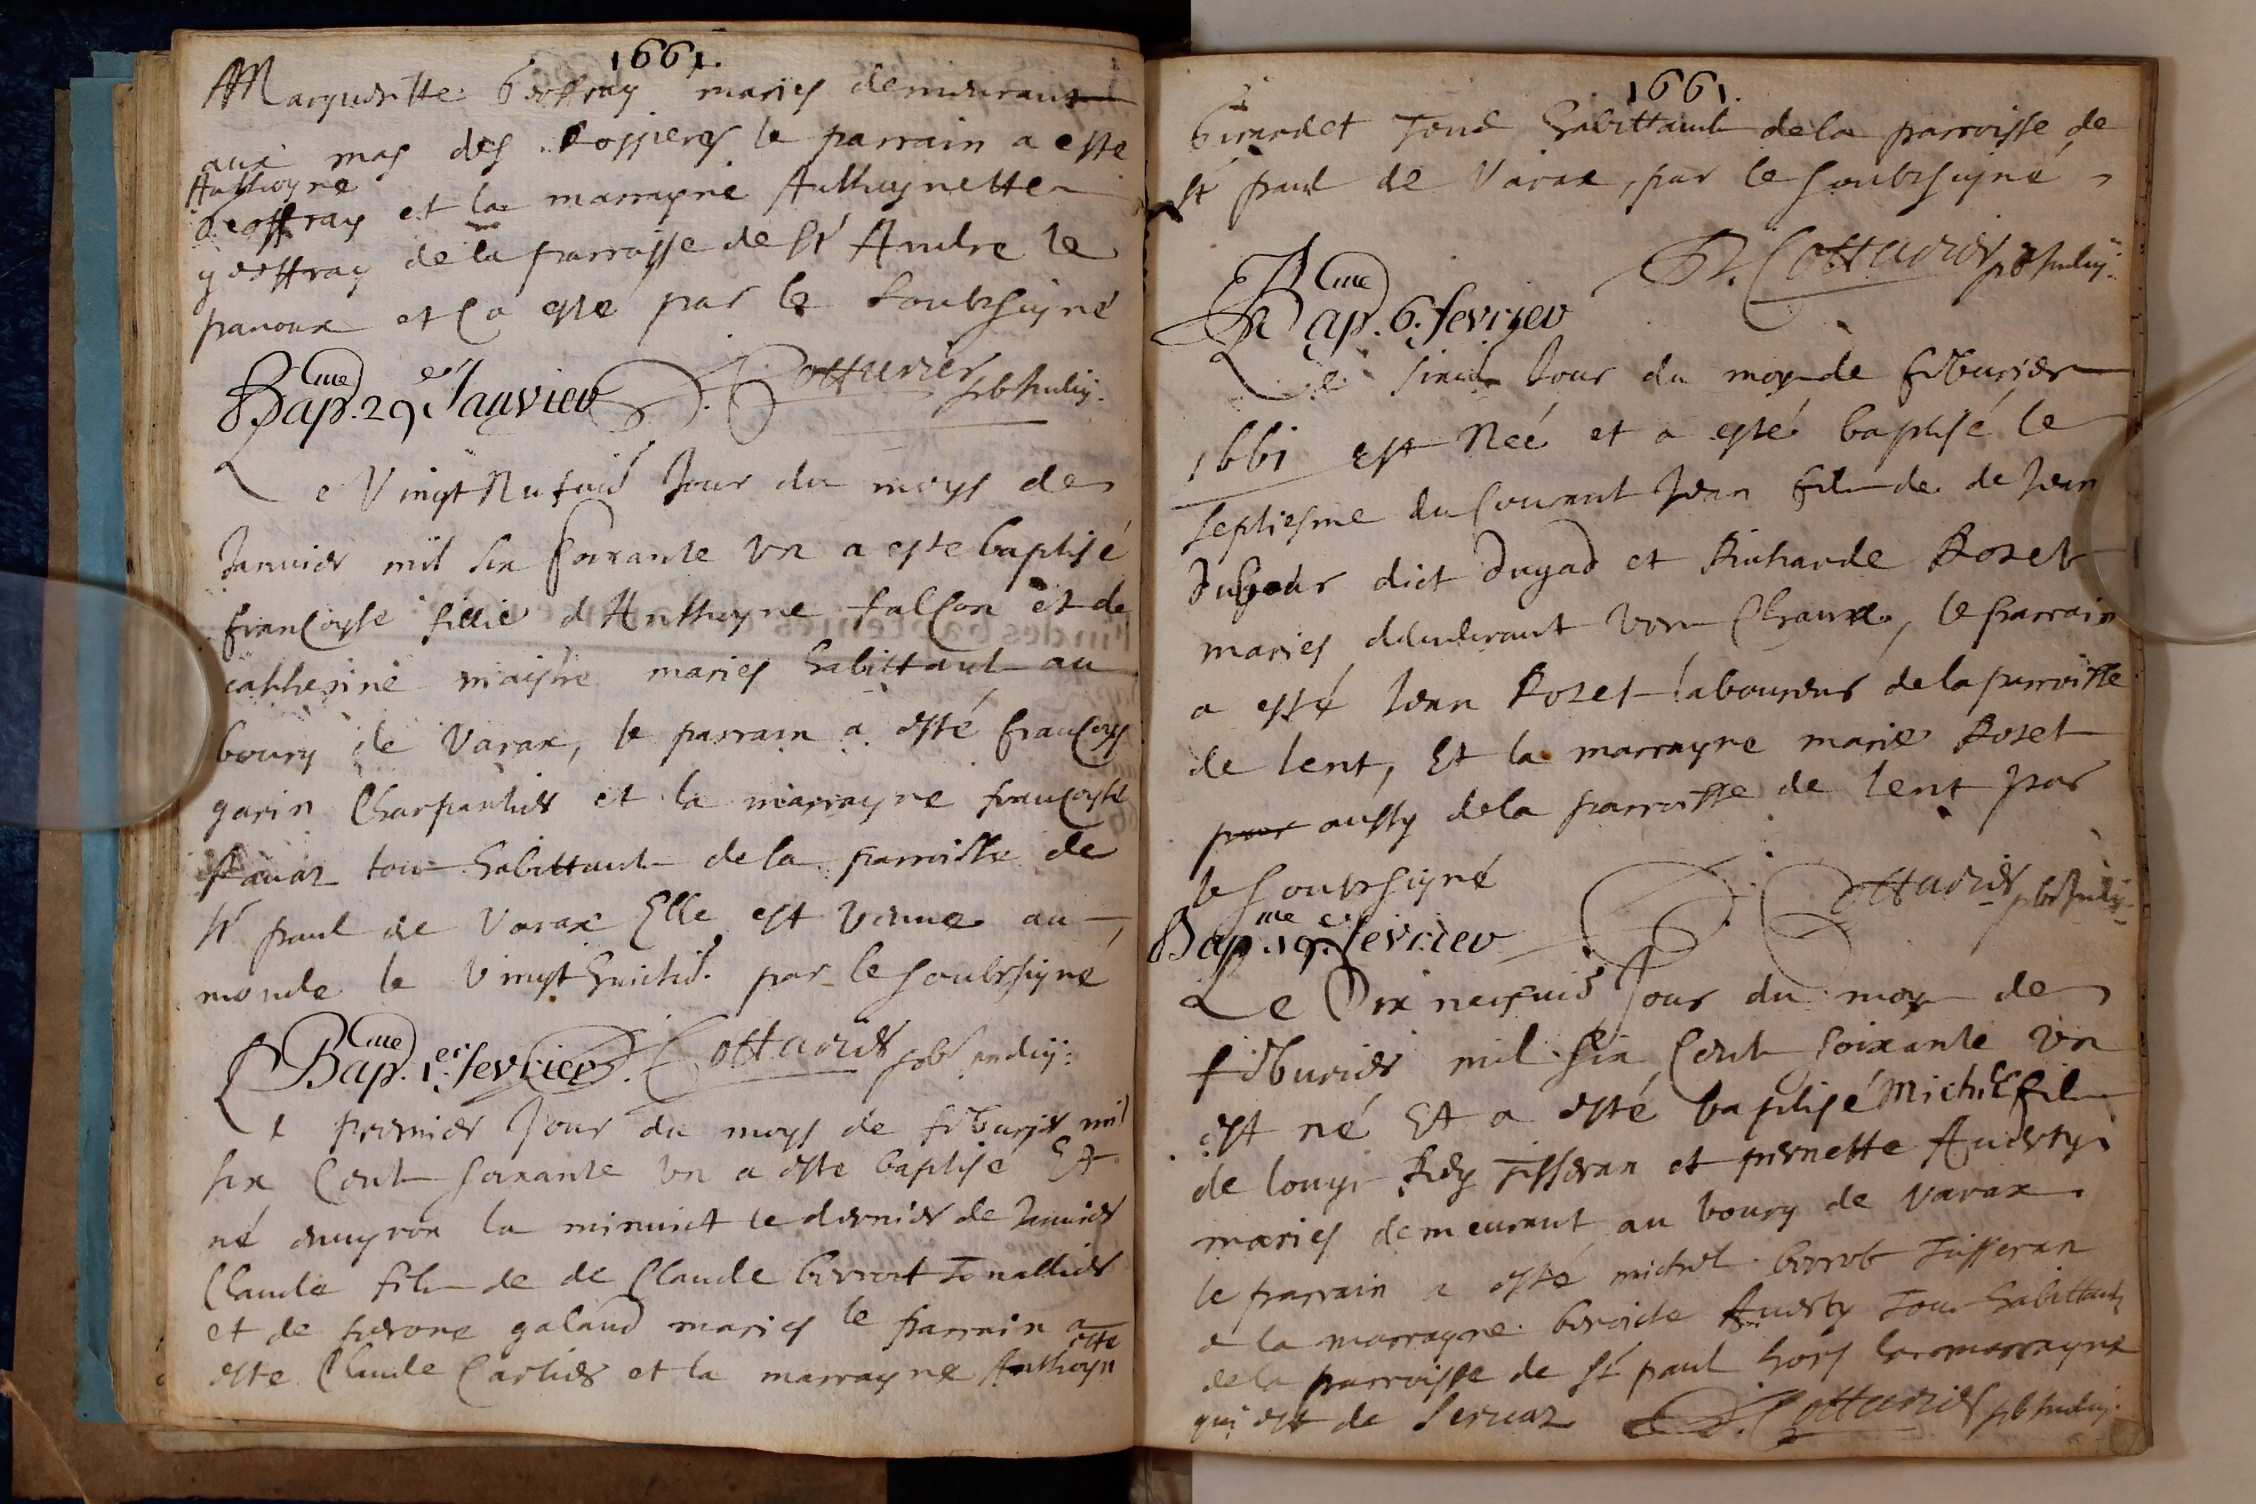 1661.
Margueritte Geoffray mariés demeurant
aux mas des Rossieres le parrain a esté
Anthoyne
Geoffray et la marrayne Anthoynette
geoffray de la parroisse de St Andre le
panoux et Ca esté par le soubsigné
Bap.me 29.er Janvier Cotturier pbr Indig.
Le Vingt Nufuie Jour du moys de
Januier mil six soixante un a este baptisé
Francoyse fillie d'Anthoyne falcon et de
catherine maistre mariés habittant au
bourg de Varax, le parrain a esté francoys
garin Charpantier et la marrayne francoyse
tous habittant de la parroisse de
St paul de Varax Elle est venue au
monde le Vingt huictie. par le soubsigné
Bap.me 1.er fevrier Cotturier pbr Indig.
Le premier Jour du moys de feburier mil
six Cent soixante un a esté baptisé Et
né enuyron la minuict le dernier de Januier
Claude fils de de Claude berrot Tonallier
et de pierone galand mariés le parrain a
esté Claude Cartier et la marrayne Anthoyn
ette
1661.
Girardet Tous habittant de la parroisse de
St paul de Varax, par le soubsigné
Cotturier pbr Indig.
Bap.me 6. fevrier
Le sixie Jour du moys de feburier
1661 est Neé et a esté baptisé le
septiesme du Courant Jean fils de de Jean
dict dugad et Richarde Rozet
mariés demeurant vers Chaux, le parrain
a esté Jean Rozet laboureur de la parroisse
de lent, Et la marrayne marie Rozet
par aussy de la parroisse de lent par
le soubsigné Cotturier pbr Indig.
Bap.me 19.er fevrier
Le Dix neufuie Jour du moys de
feburier mil six Cent soixante un
est né Et a esté baptisé Michel fils
de louys Rey Tisseran et pernette Auerty
mariés demeurant au bourg de Varax
le parrain a esté michel berrot Tisseran
e la marrayne benoiste Auerty Tous habittant
de la parroisse de St paul hors la marrayne
qui est de Seruaz Cotturier pbr Indig.